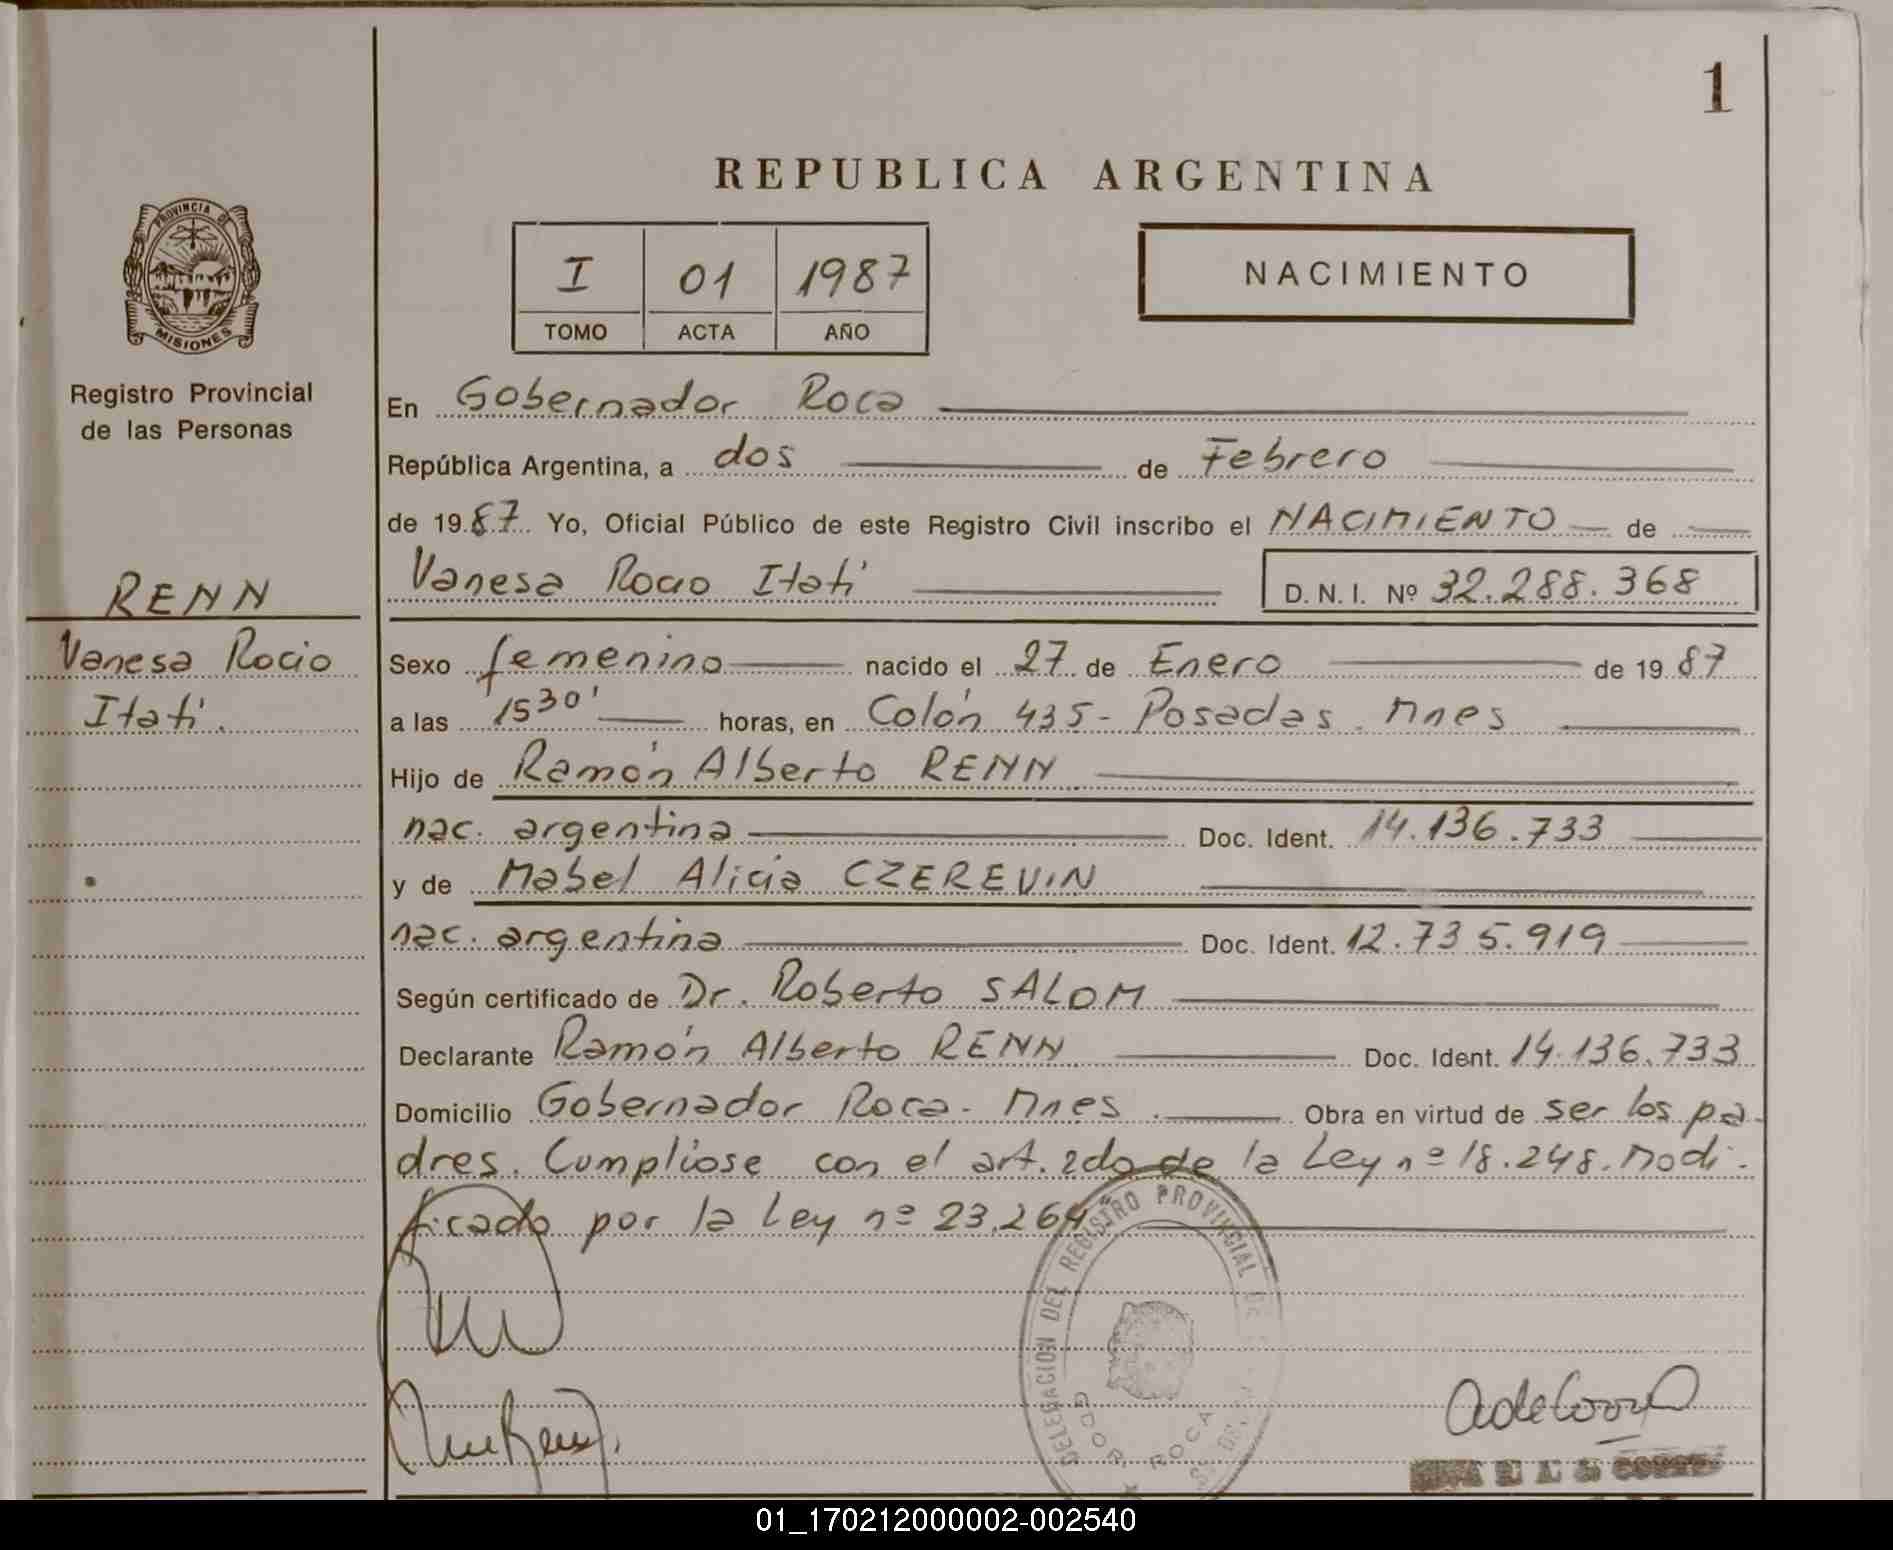 1
REPUBLICA ARGENTINA
PROVINCIA DE
MISIONES
Registro Provincial
de las Personas
I 01 1987
TOMO ACTA AÑO
NACIMIENTO
En Gobernador Roca
República Argentina, a dos de Febrero
de 1987 Yo, Oficial Público de este Registro Civil inscribo el NACIMIENTO de
Vanesa Rocio Itatí D.N.I. Nº 32.288.368
RENN
Vanesa Rocio
Itatí.
Sexo femenino nacido el 27 de Enero de 1987
a las 15 30' horas, en Colón 435 - Posadas. Mnes
Hijo de Ramón Alberto RENN
nac. argentina Doc. Ident. 14.136.733
y de Mabel Alicia CZEREVIN
nac. argentina Doc. Ident. 12.735.919
Según certificado de Dr. Roberto SALOM
Declarante Ramón Alberto RENN Doc. Ident. 14.136.733
Domicilio Gobernador Roca - Mnes. Obra en virtud de ser los pa-
dres. Cumpliose con el art. 2do de la Ley nº 18.248. Modi-
ficado por la Ley nº 23.264
DELEGACION DEL REGISTRO PROVINCIAL DE
GDOR. ROCA
01_170212000002-002540